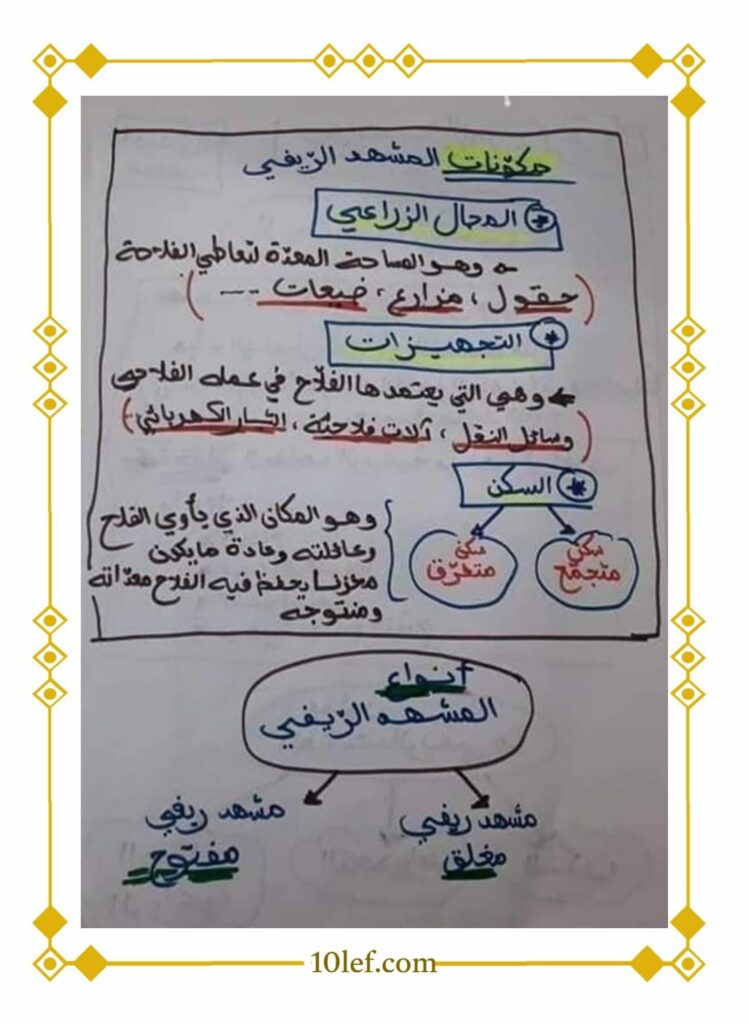 مكوّنات المشهد الرّيفي
* المجال الزراعي
وهو المساحة المعدّة لتعاطي الفلاحة
(حقول، مزارع، ضيعات ...)
* التجهيزات
وهي التي يعتمدها الفلّاح في عمله الفلاحي
(وسائل النقل، آلات فلاحيّة، التيار الكهربائي)
* السكن
سكن متجمّع
سكن متفرّق
وهو المكان الذي يأوي الفلاح
وعائلته وعادة ما يكون
مخزنا يحفظ فيه الفلاح معدّاته
ومنتوجه
أنواع
المشهد الرّيفي
مشهد ريفي
مغلق
مشهد ريفي
مفتوح
10lef.com